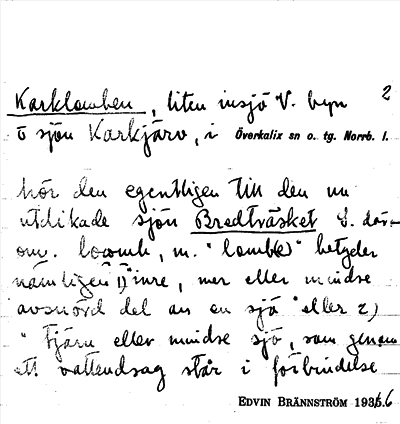 2
Karklomben, liten insjö V. byn
o sjön Karkjärv, i Överkalix sn o. tg. Norrb. l.
hör den egentligen till den nu
utdikade sjön Bredträsket S. där-
om. m. "lomb(e)" betyder
nämligen 1) "inre, mer eller mindre
avsnörd del av en sjö" eller 2)
"Tjärn eller mindre sjö, som genom
ett vattendrag står i förbindelse
EDVIN BRÄNNSTRÖM 1936